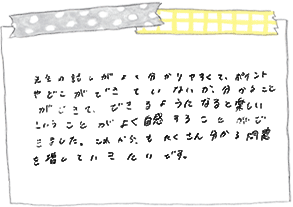 先生の話しがよく分かりやすくて、ポイント
やどこができていないか、分かること
ができて、できるようになると楽しい
ということがよく自感することがで
きました。これからもたくさん分かる問題
を増していきたいです。